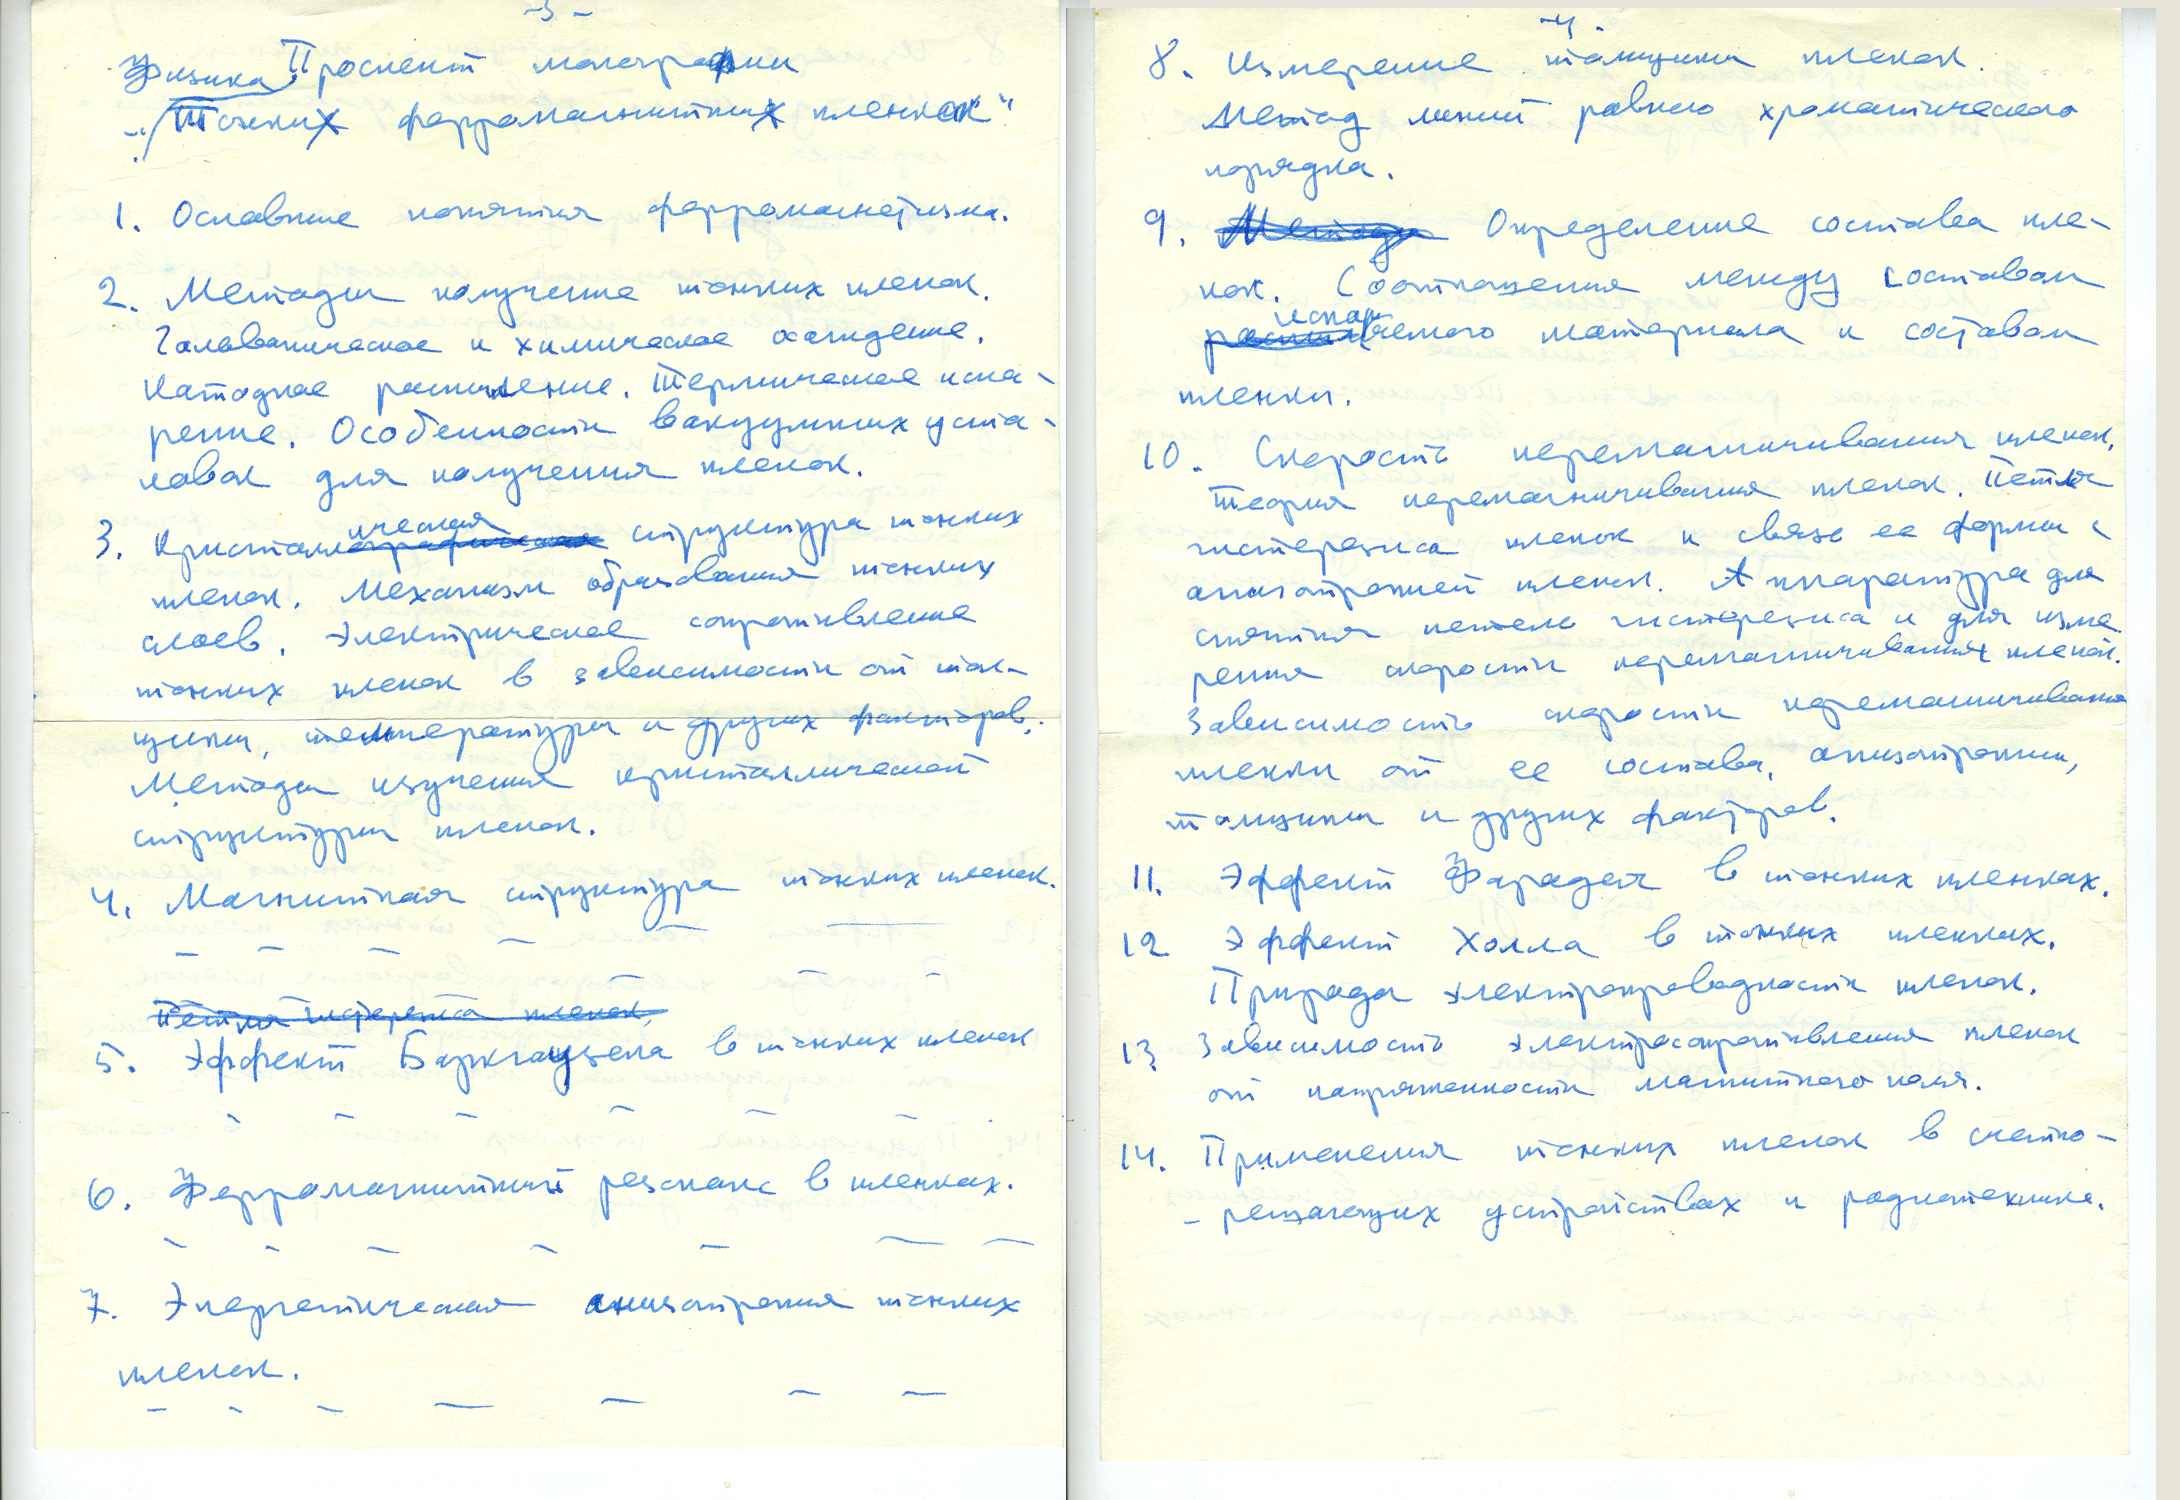 -3-
Проспект монографии
Физика
„Тонких ферромагнитных пленок“
1. Основные понятия ферромагнетизма.
2. Методы получение тонких пленок.
Гальваническое и химическое осаждение.
Катодное распыление. Термическое испа-
рение. Особенности вакуумных уста-
новок для получения пленок.
ическая
3. Кристаллографическая структура тонких
пленок. Механизм образования тонких
слоев. Электрическое сопротивление
тонких пленок в зависимости от тол-
щины, температуры и других факторов.
Методы изучения кристаллической
структуры пленок.
4. Магнитная структура тонких пленок.
Петля гистерезиса пленок.
5. Эффект Баркгаузена в тонких пленок
6. Ферромагнитный резонанс в пленках.
7. Энергетическая анизотропия тонких
пленок.
-4-
8. Измерение толщины пленок.
Метод линий равного хроматического
порядка.
9. Методы Определение состава пле-
нок. Соотношения между составом
испар
распыляемого материала и составом
пленки.
10. Скорость перемагничивания пленок.
Теория перемагничивания пленок. Петля
гистерезиса пленок и связь ее формы с
анизотропией пленок. Аппаратура для
снятия петель гистерезиса и для изме
рения скорости перемагничивания пленок.
Зависимость скорости перемагничивания
пленки от ее состава, анизотропии,
толщины и других факторов.
11. Эффект Фарадея в тонких пленках.
12 Эффект Холла в тонких пленках.
Природа электропроводности пленок.
13 Зависимость электросопротивления пленок
от напряженности магнитного поля.
14. Применения тонких пленок в счетно-
-решающих устройствах и радиотехнике.